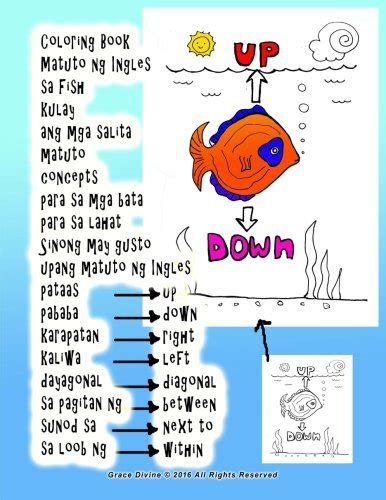 Coloring Book
Matuto ng Ingles
sa Fish
Kulay
ang mga salita
Matuto
concepts
para sa mga bata
para sa lahat
Sinong may gusto
upang matuto ng Ingles
pataas → up
pababa → down
Karapatan → right
Kaliwa → left
dayagonal → diagonal
sa pagitan ng → between
sunod sa → next to
sa loob ng → within
UP
DOWN
UP
DOWN
Grace Divine © 2016 All Rights Reserved